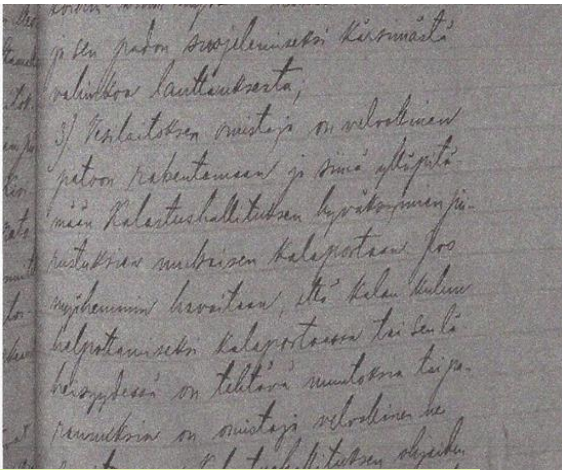 ja sen padon suojelemiseksi kärsimästä
vahinkoa lauttauksesta;
3) Vesilaitoksen omistaja on velvollinen
patoon rakentamaan ja siinä ylläpitä-
mään Kalastushallituksen hyväksymien pii-
rustuksien mukaisen kalaportaan. Jos
myöhemmin havaitaan, että kalan kulun
helpottamiseksi kalaportaassa tai sen lä-
heisyydessä on tehtävä muutoksia tai pa-
rannuksia on omistaja velvollinen ne
Kalastushallituksen ohjeiden